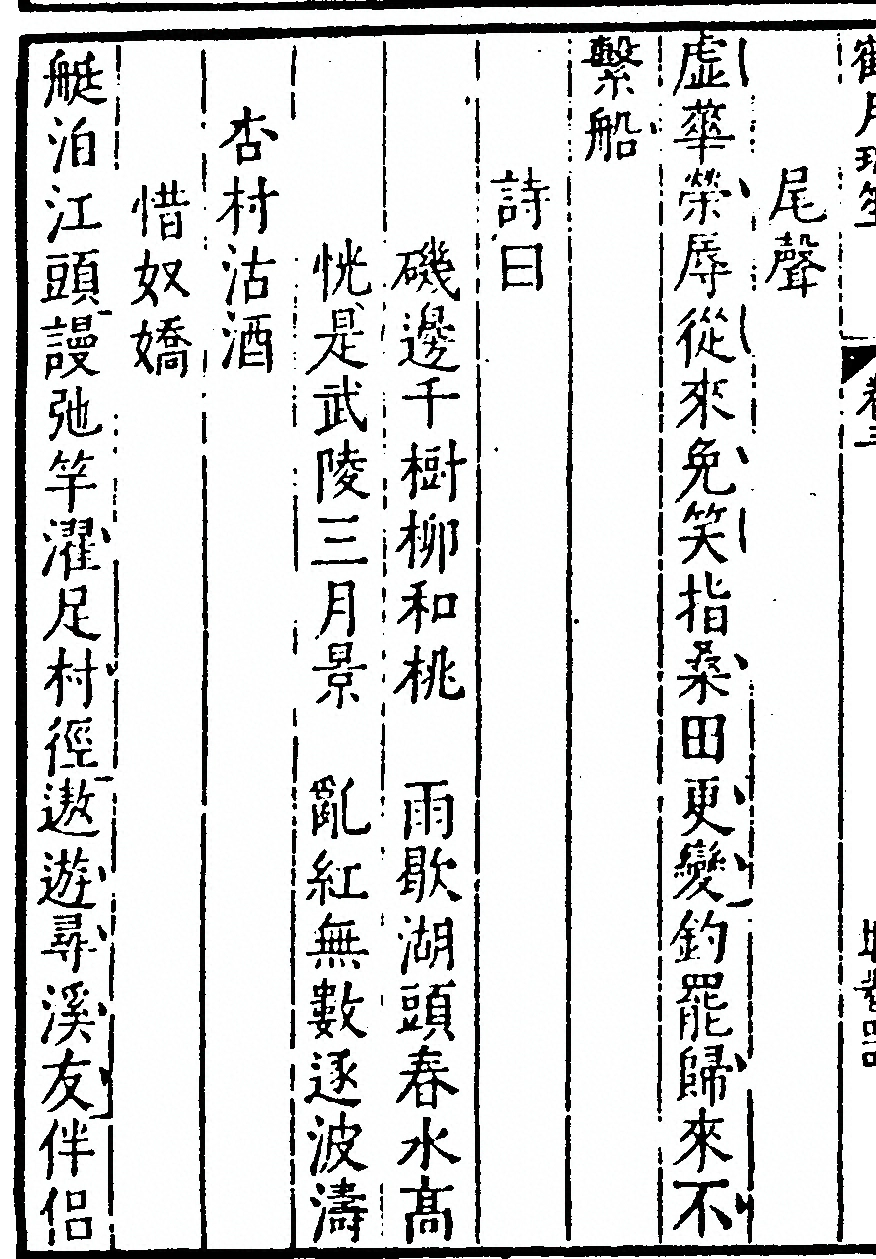 鶴月瑤笙 卷三
尾聲
虛華榮辱從來免笑指桑田更變釣罷歸來不
繫船
詩曰
磯邊千樹柳和桃 雨歇湖頭春水高
恍是武陵三月景 亂紅無數逐波濤
杏村沽酒
惜奴嬌
艇泊江頭謾弛竿濯足村徑遨遊尋溪友伴侶